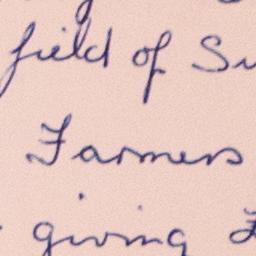 field of
Farmers
giving